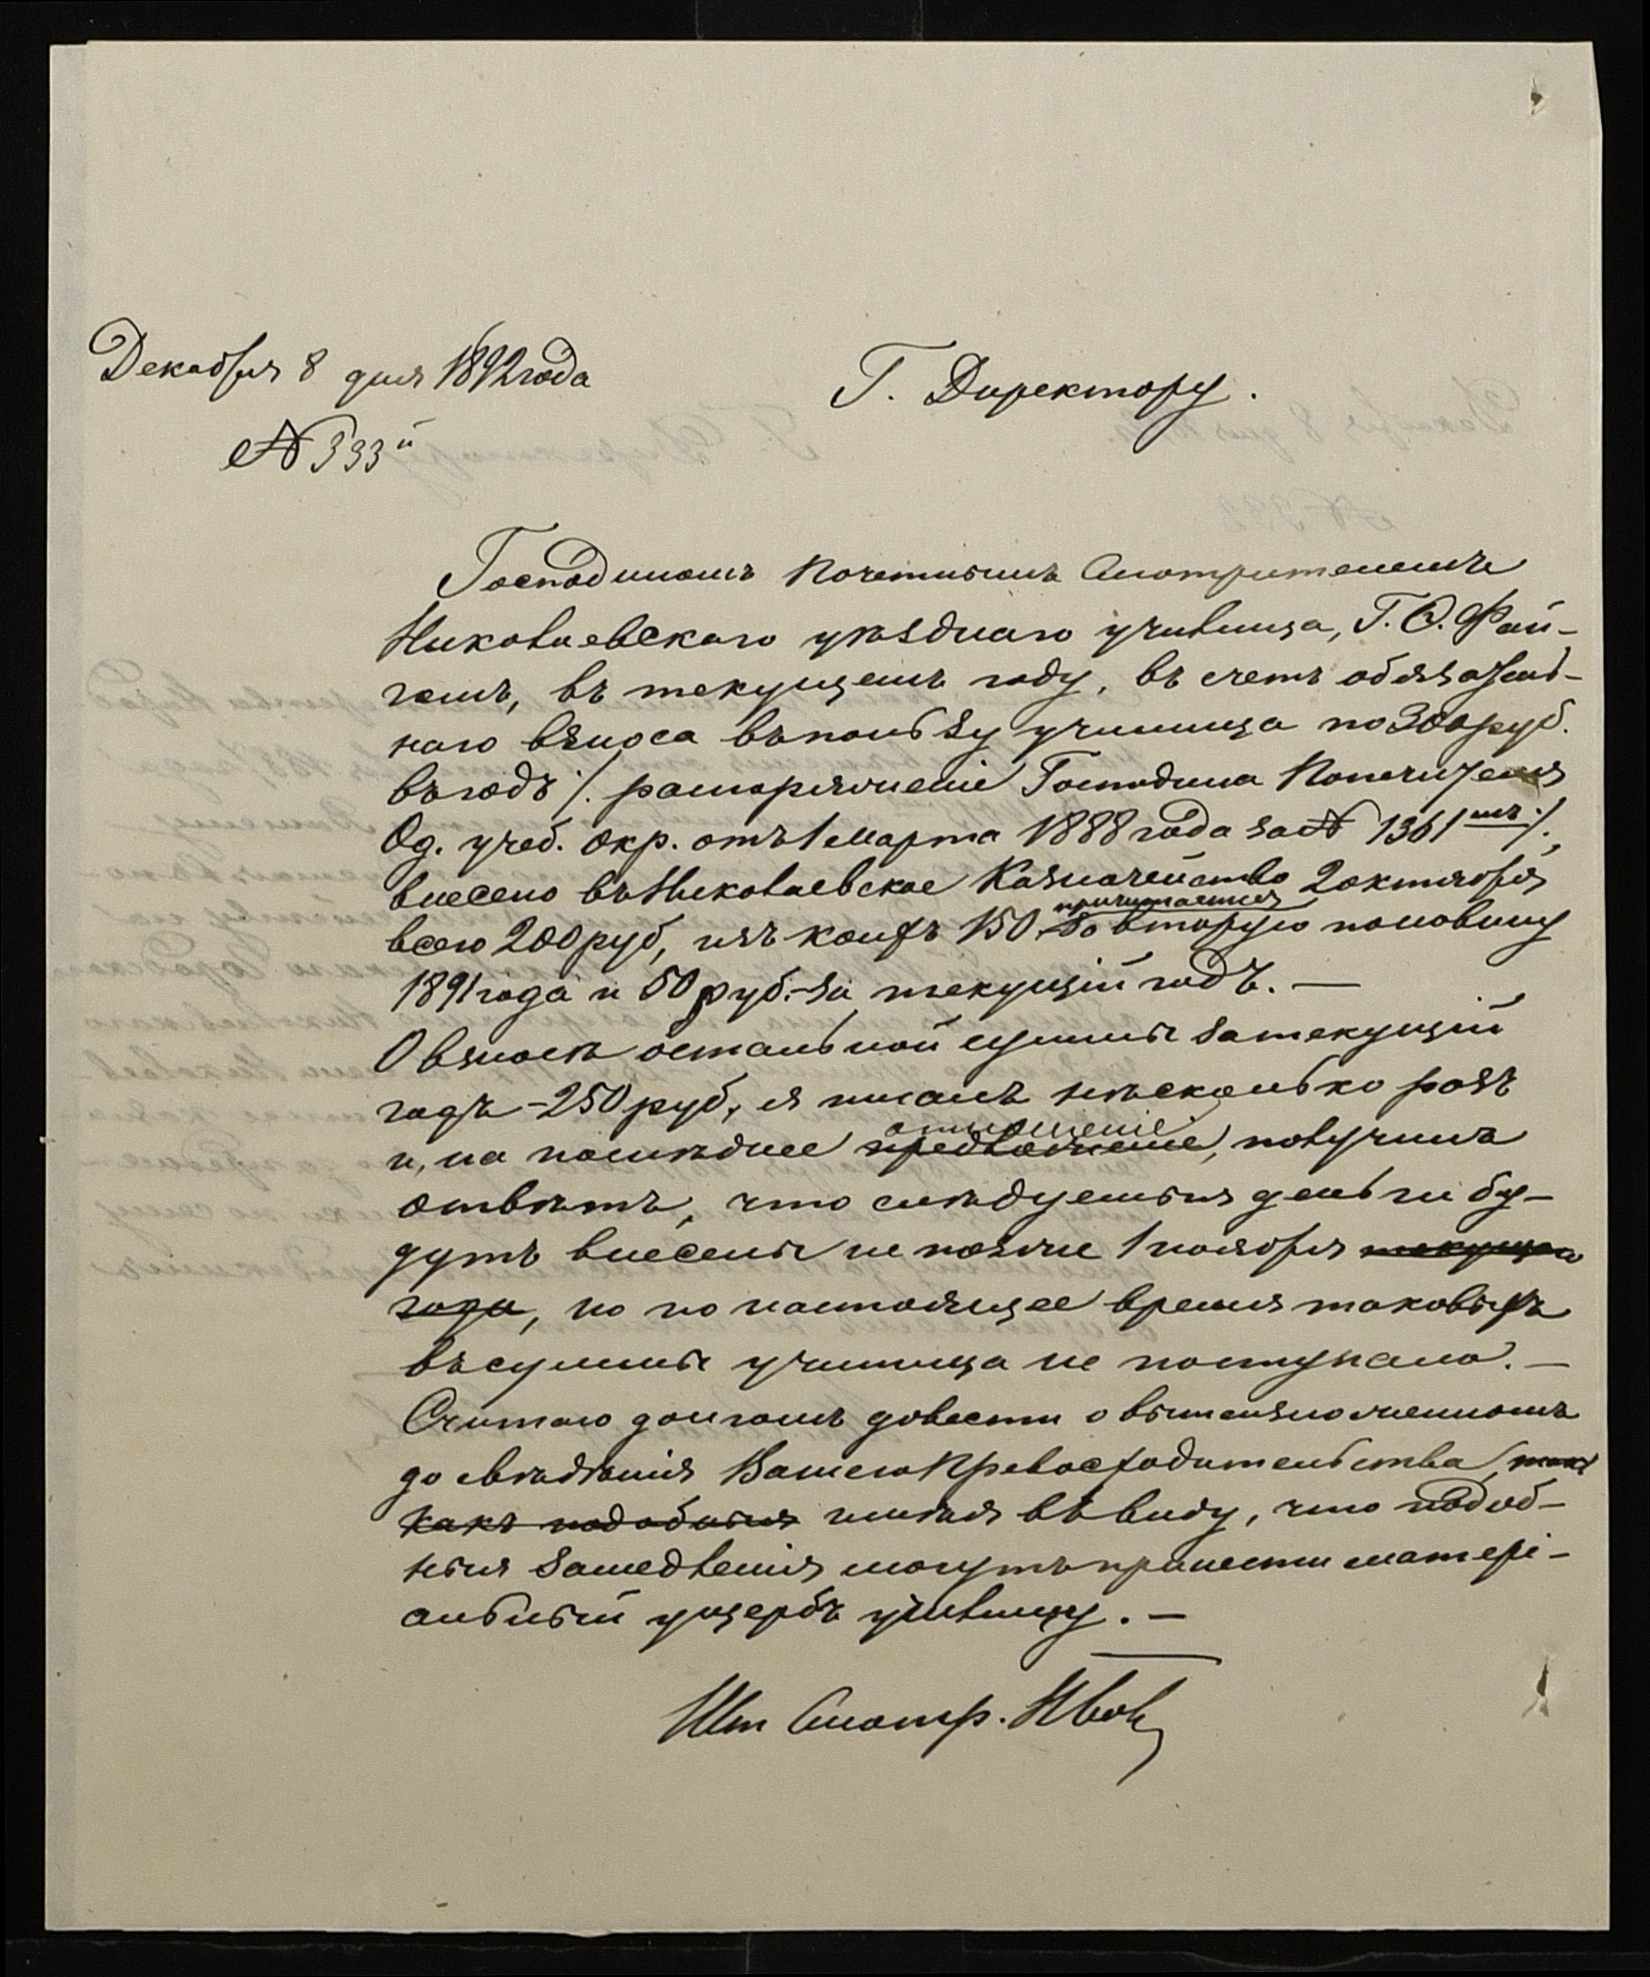 Декабря 8 дня 1892 года
№ 333й
Г. Директору.
Господиномъ Почетнымъ Смотрителемъ
Николаевскаго уѣзднаго училища, Г. О. Фай-
гомъ, въ текущемъ году, въ счетъ обязатель-
наго взноса въ пользу училища по 300 руб.
въ годъ /. распоряженіе Господина Попечителя
Од. учеб. Окр. отъ 1 Марта 1888 года за № 1361мъ ./,
внесено въ Николаевское Казначейство 2 октября
причитается
всего 200 руб, изъ коихъ 150 за вторую половину
1891 года и 50 руб. за текущій годъ. —
О взносѣ остальной суммы за текущій
годъ - 250 руб, я писалъ нѣсколько разъ
отношеніе
и, на послѣднее предложеніе, получилъ
отвѣтъ, что слѣдуемыя деньги бу-
дутъ внесены не позже 1 ноября текущаго
года, но по настоящее время таковыхъ
въ суммы училища не поступало. —
Считаю долгомъ довести о вышеизложенномъ
до свѣдѣнія Вашего Превосходительства, такъ
какъ подобныя имѣя въ виду, что подоб-
ныя замедленія могутъ принести матері-
альный ущербъ училищу. —
Шт Смотр.